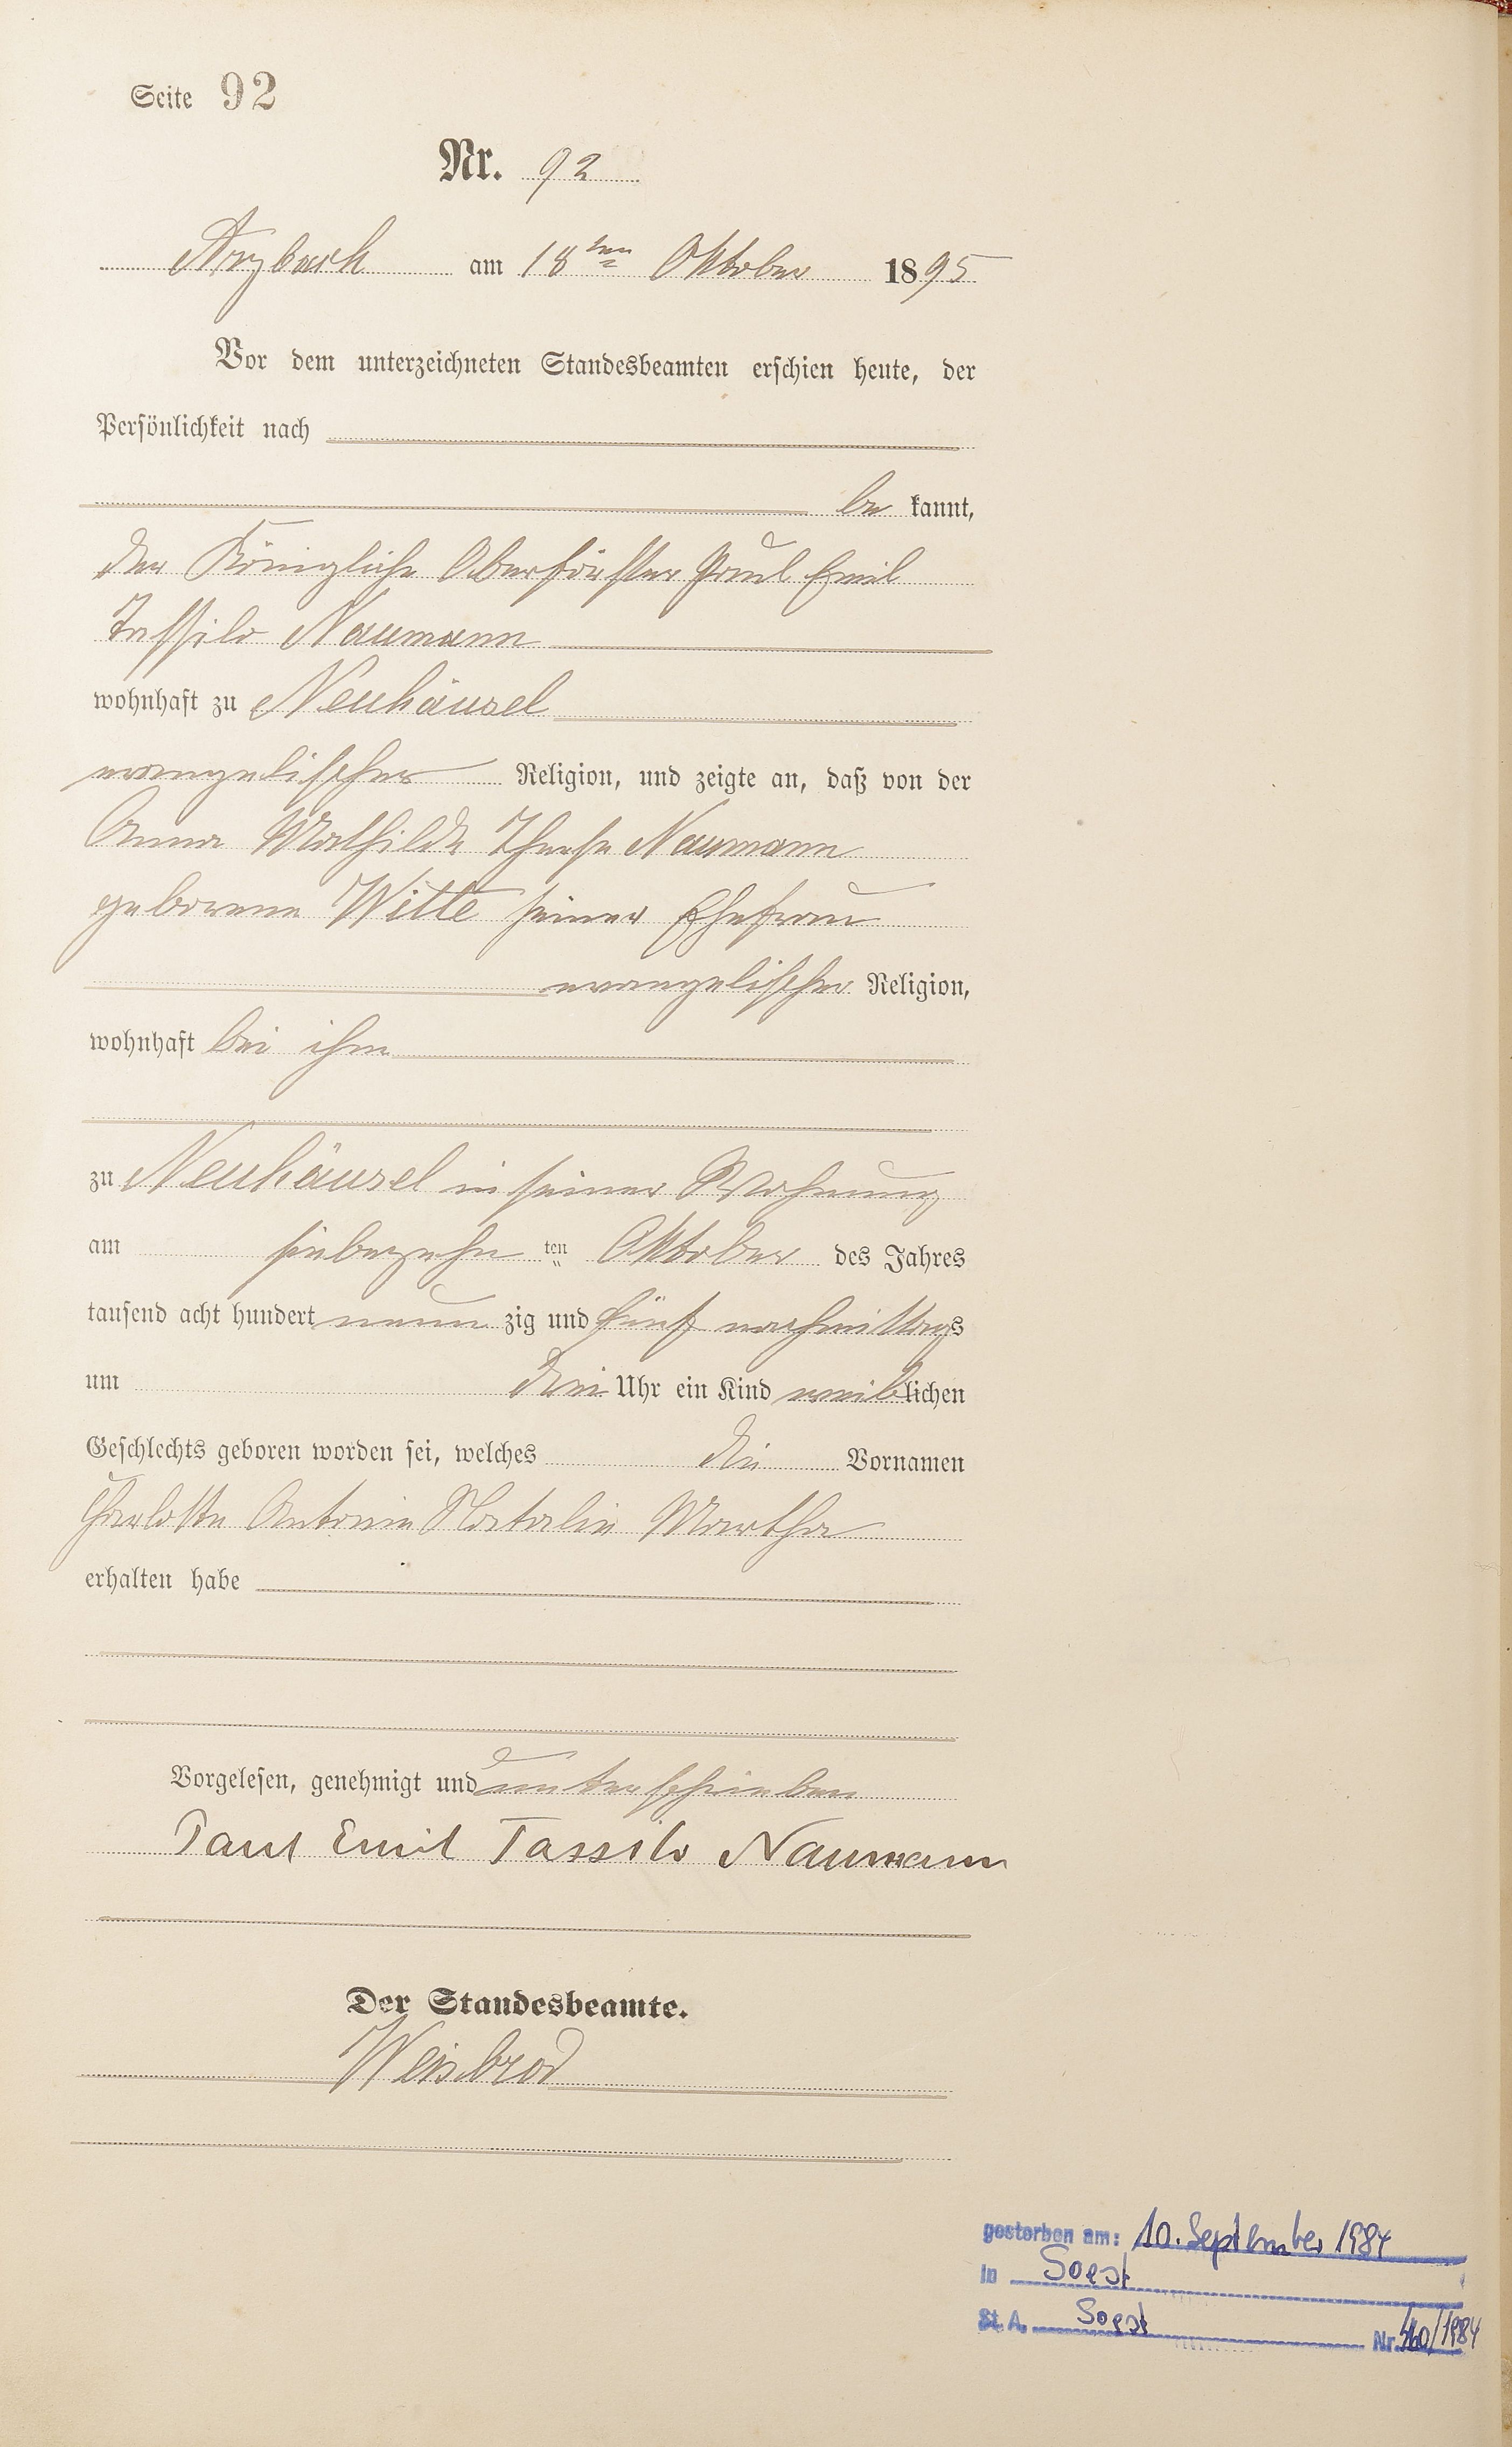 Seite 92
Nr. 92
Arzbach am 18ten Oktober 1895
Vor dem unterzeichneten Standesbeamten erschien heute, der
Persönlichkeit nach
be kannt,
der Königliche Oberförster Paul Emil
Tassilo Naumann
wohnhaft zu Neuhäusel
evangelischer Religion, und zeigte an, daß von der
Anna Mathilde Therese Naumann
geborene Witte seiner Ehefrau
evangelischer Religion,
wohnhaft bei ihm
zu Neuhäusel in seiner Wohnung
am siebenzehn ten Oktober des Jahres
tausend acht hundert neun zig und fünf nachmittags
um drei Uhr ein Kind weiblichen
Geschlechts geboren worden sei, welches die Vornamen
Charlotte Antonie Natalie Martha
erhalten habe
Vorgelesen, genehmigt und unterschrieben
Paul Emil Tassilo Naumann
Der Standesbeamte.
Weisbrod
gestorben am: 10. September 1984
in Soest
St. A. Soest Nr. /1984